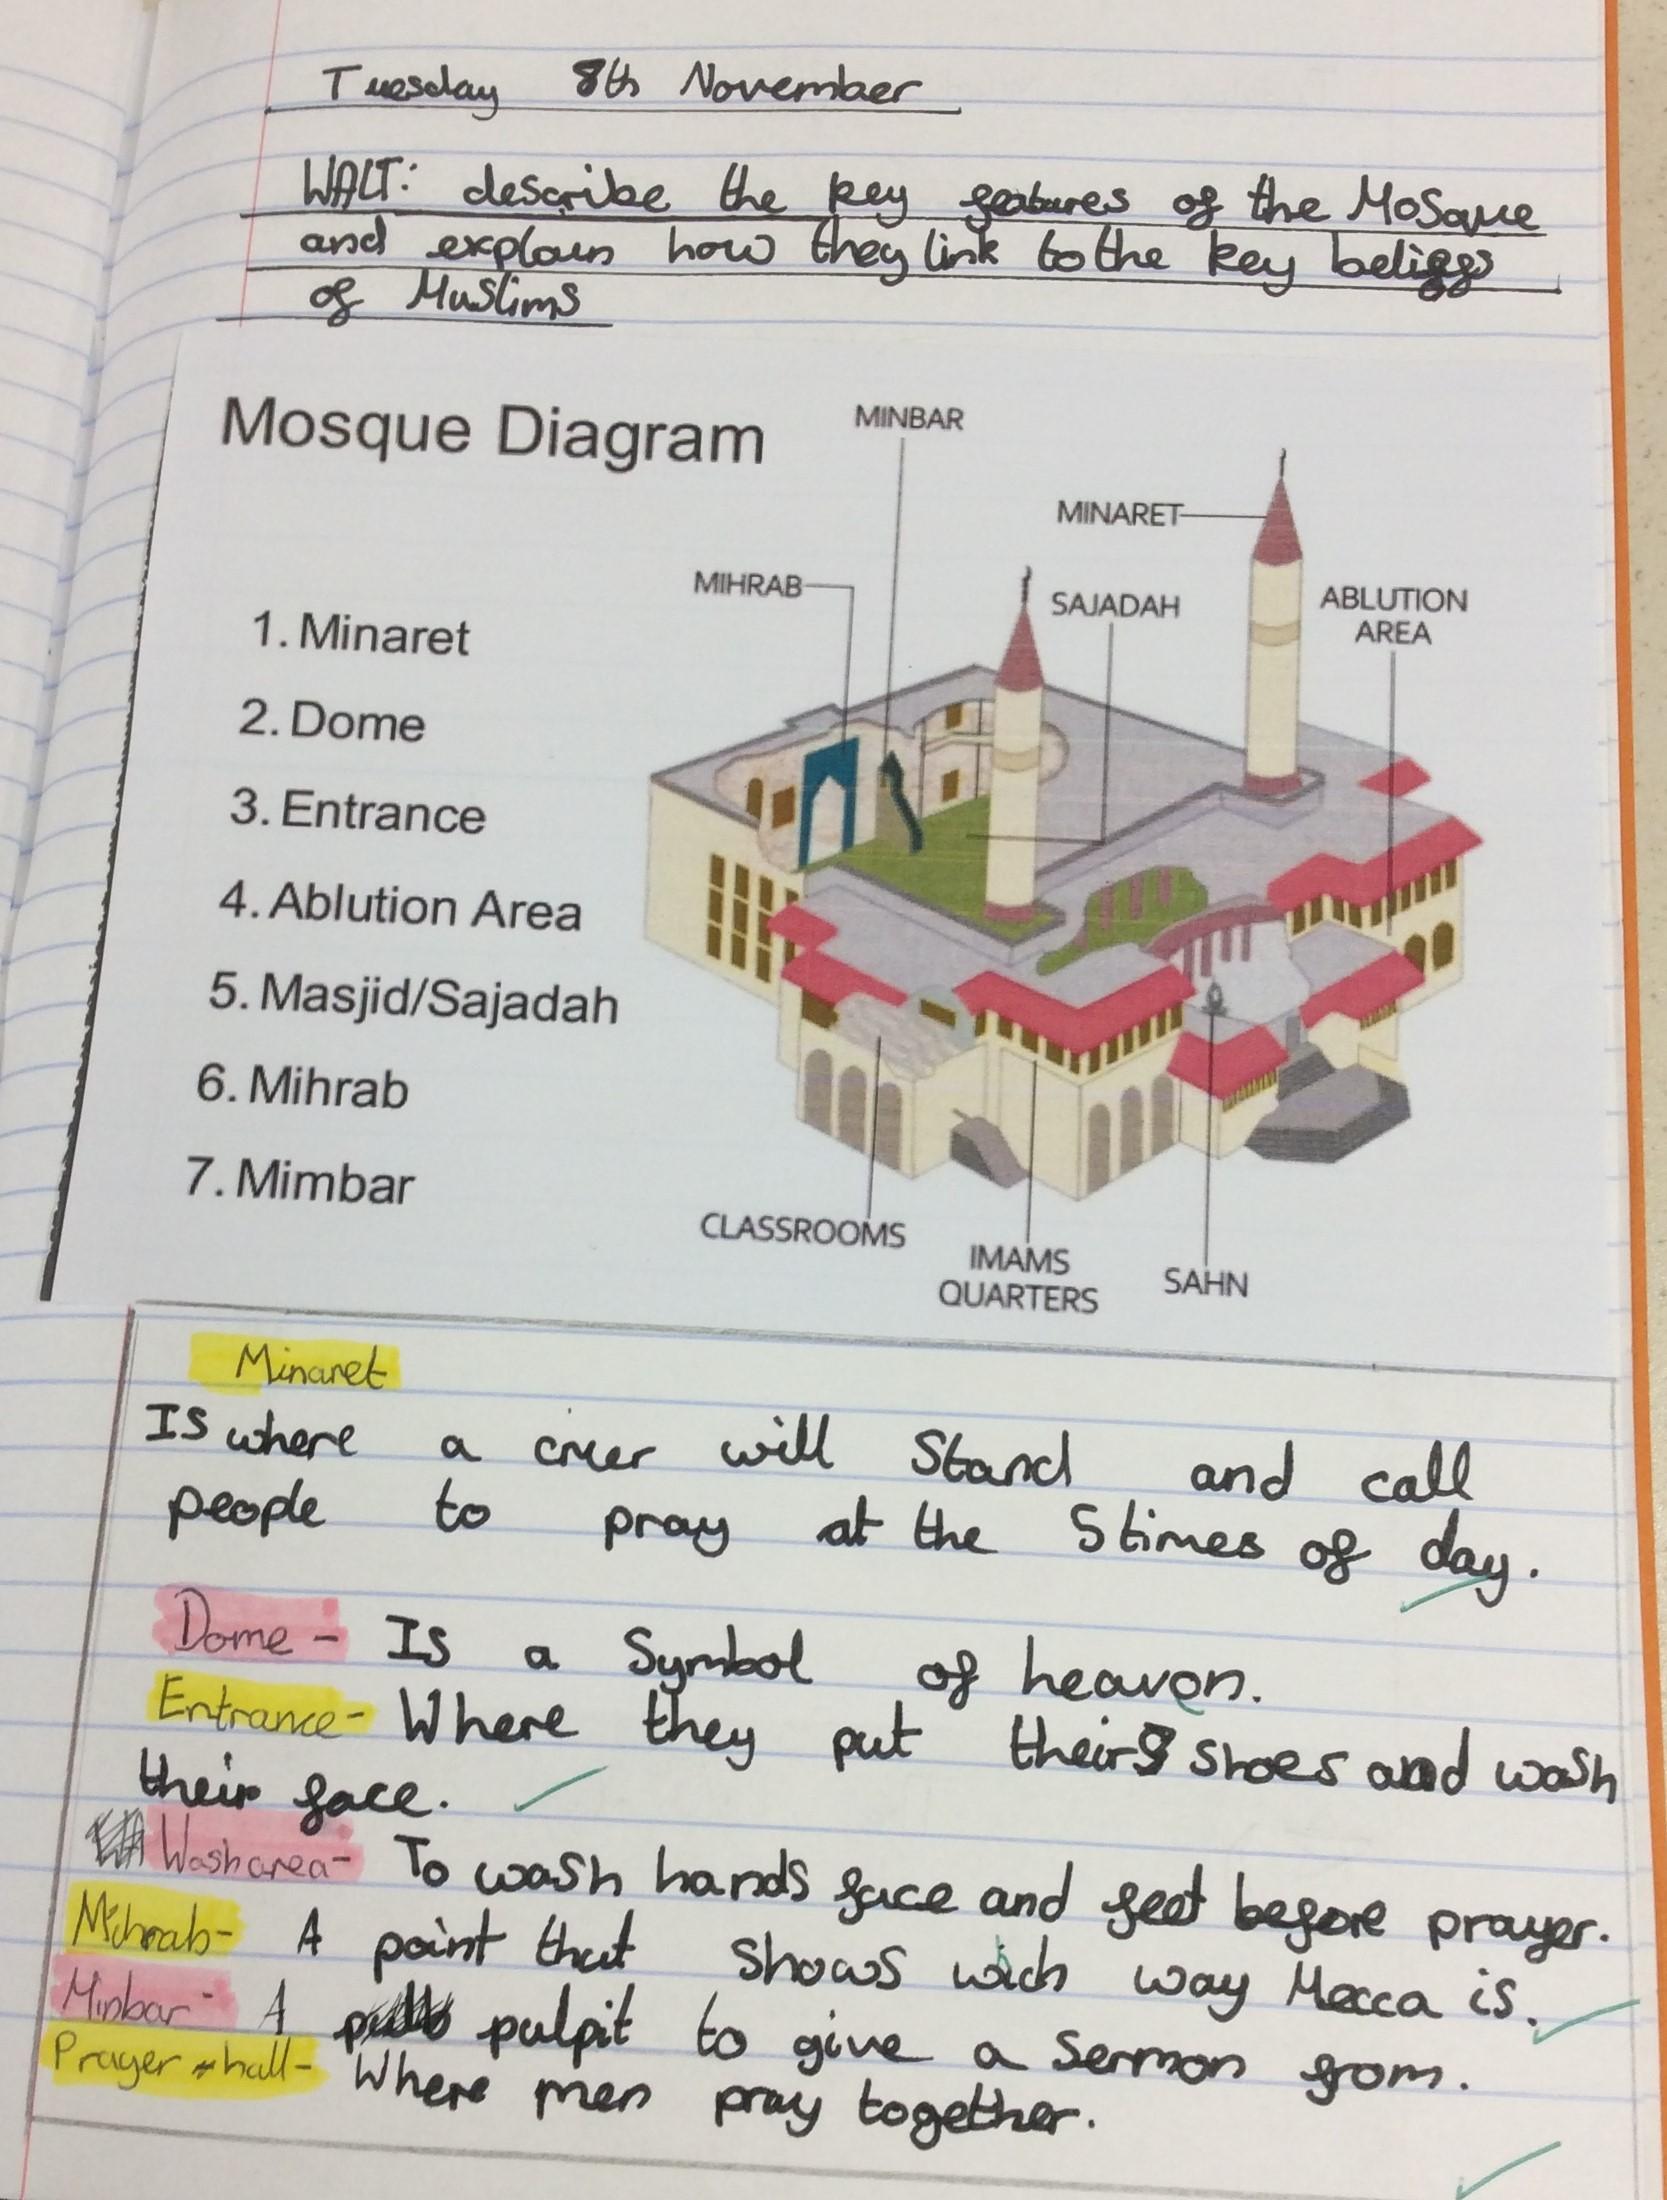 Tuesday 8th November
WALT: describe the key features of the Mosque
and explain how they link to the key beliefs
of Muslims
Mosque Diagram
MINBAR
MINARET
MIHRAB
SAJADAH
ABLUTION
AREA
1. Minaret
2. Dome
3. Entrance
4. Ablution Area
5. Masjid/Sajadah
6. Mihrab
7. Mimbar
CLASSROOMS
IMAMS
QUARTERS
SAHN
Minaret
Is where a crier will Stand and call
people to pray at the 5 times of day.
Dome - Is a Symbol of heaven.
Entrance - Where they put their shoes and wash
their face.
Wash area - To wash hands face and feet before prayer.
Mihrab - A point that shows wich way Mecca is.
Minbar - A pulpit to give a sermon from.
Prayer - hall - Where men pray together.